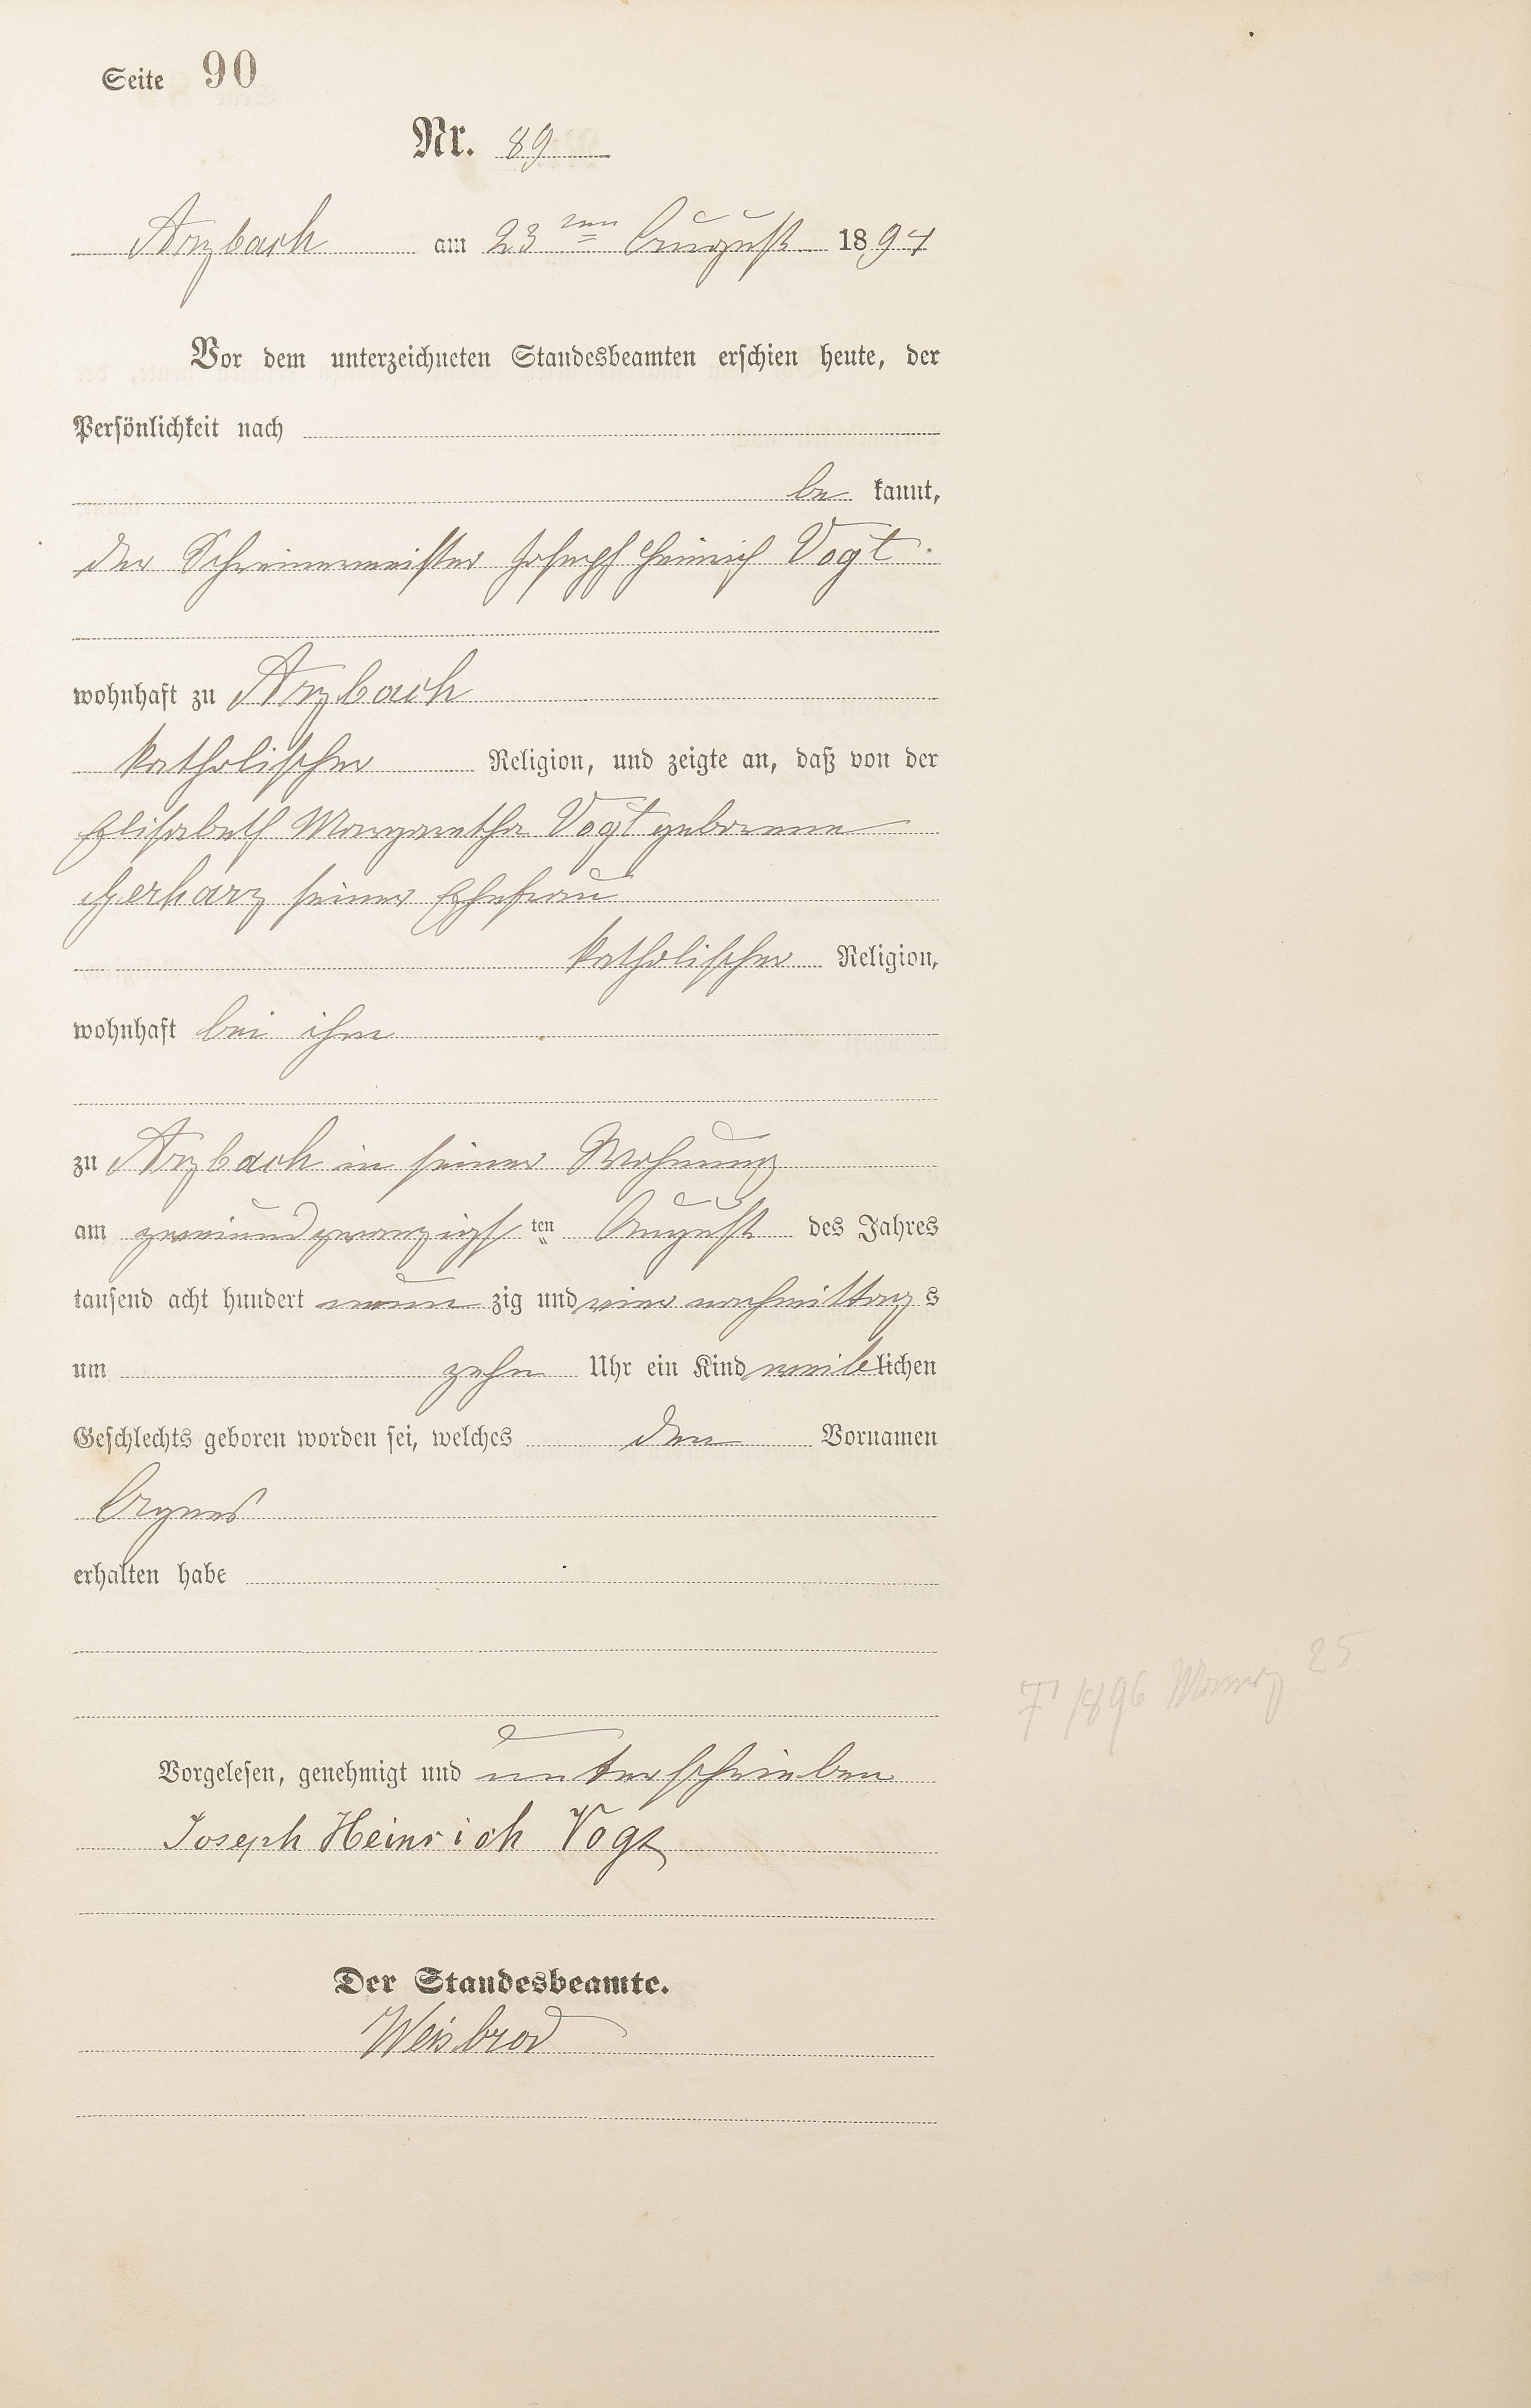 Seite 90
Nr. 89
Arzbach am 23ten August 1894
Vor dem unterzeichneten Standesbeamten erschien heute, der
Persönlichkeit nach
be kannt,
der Schreinermeister Joseph Heinrich Vogt
wohnhaft zu Arzbach
katholischer Religion, und zeigte an, daß von der
Elisabeth Margaretha Vogt geborene
Gerharz seiner Ehefrau
katholischer Religion,
wohnhaft bei ihm
zu Arzbach in seiner Wohnung
am zweiundzwanzigsten August des Jahres
tausend acht hundert neun zig und vier nachmittags
um zehn Uhr ein Kind weiblichen
Geschlechts geboren worden sei, welches den Vornamen
Agnes
erhalten habe
† 1896 25
Vorgelesen, genehmigt und unterschrieben
Joseph Heinrich Vogt
Der Standesbeamte.
Weisbrod